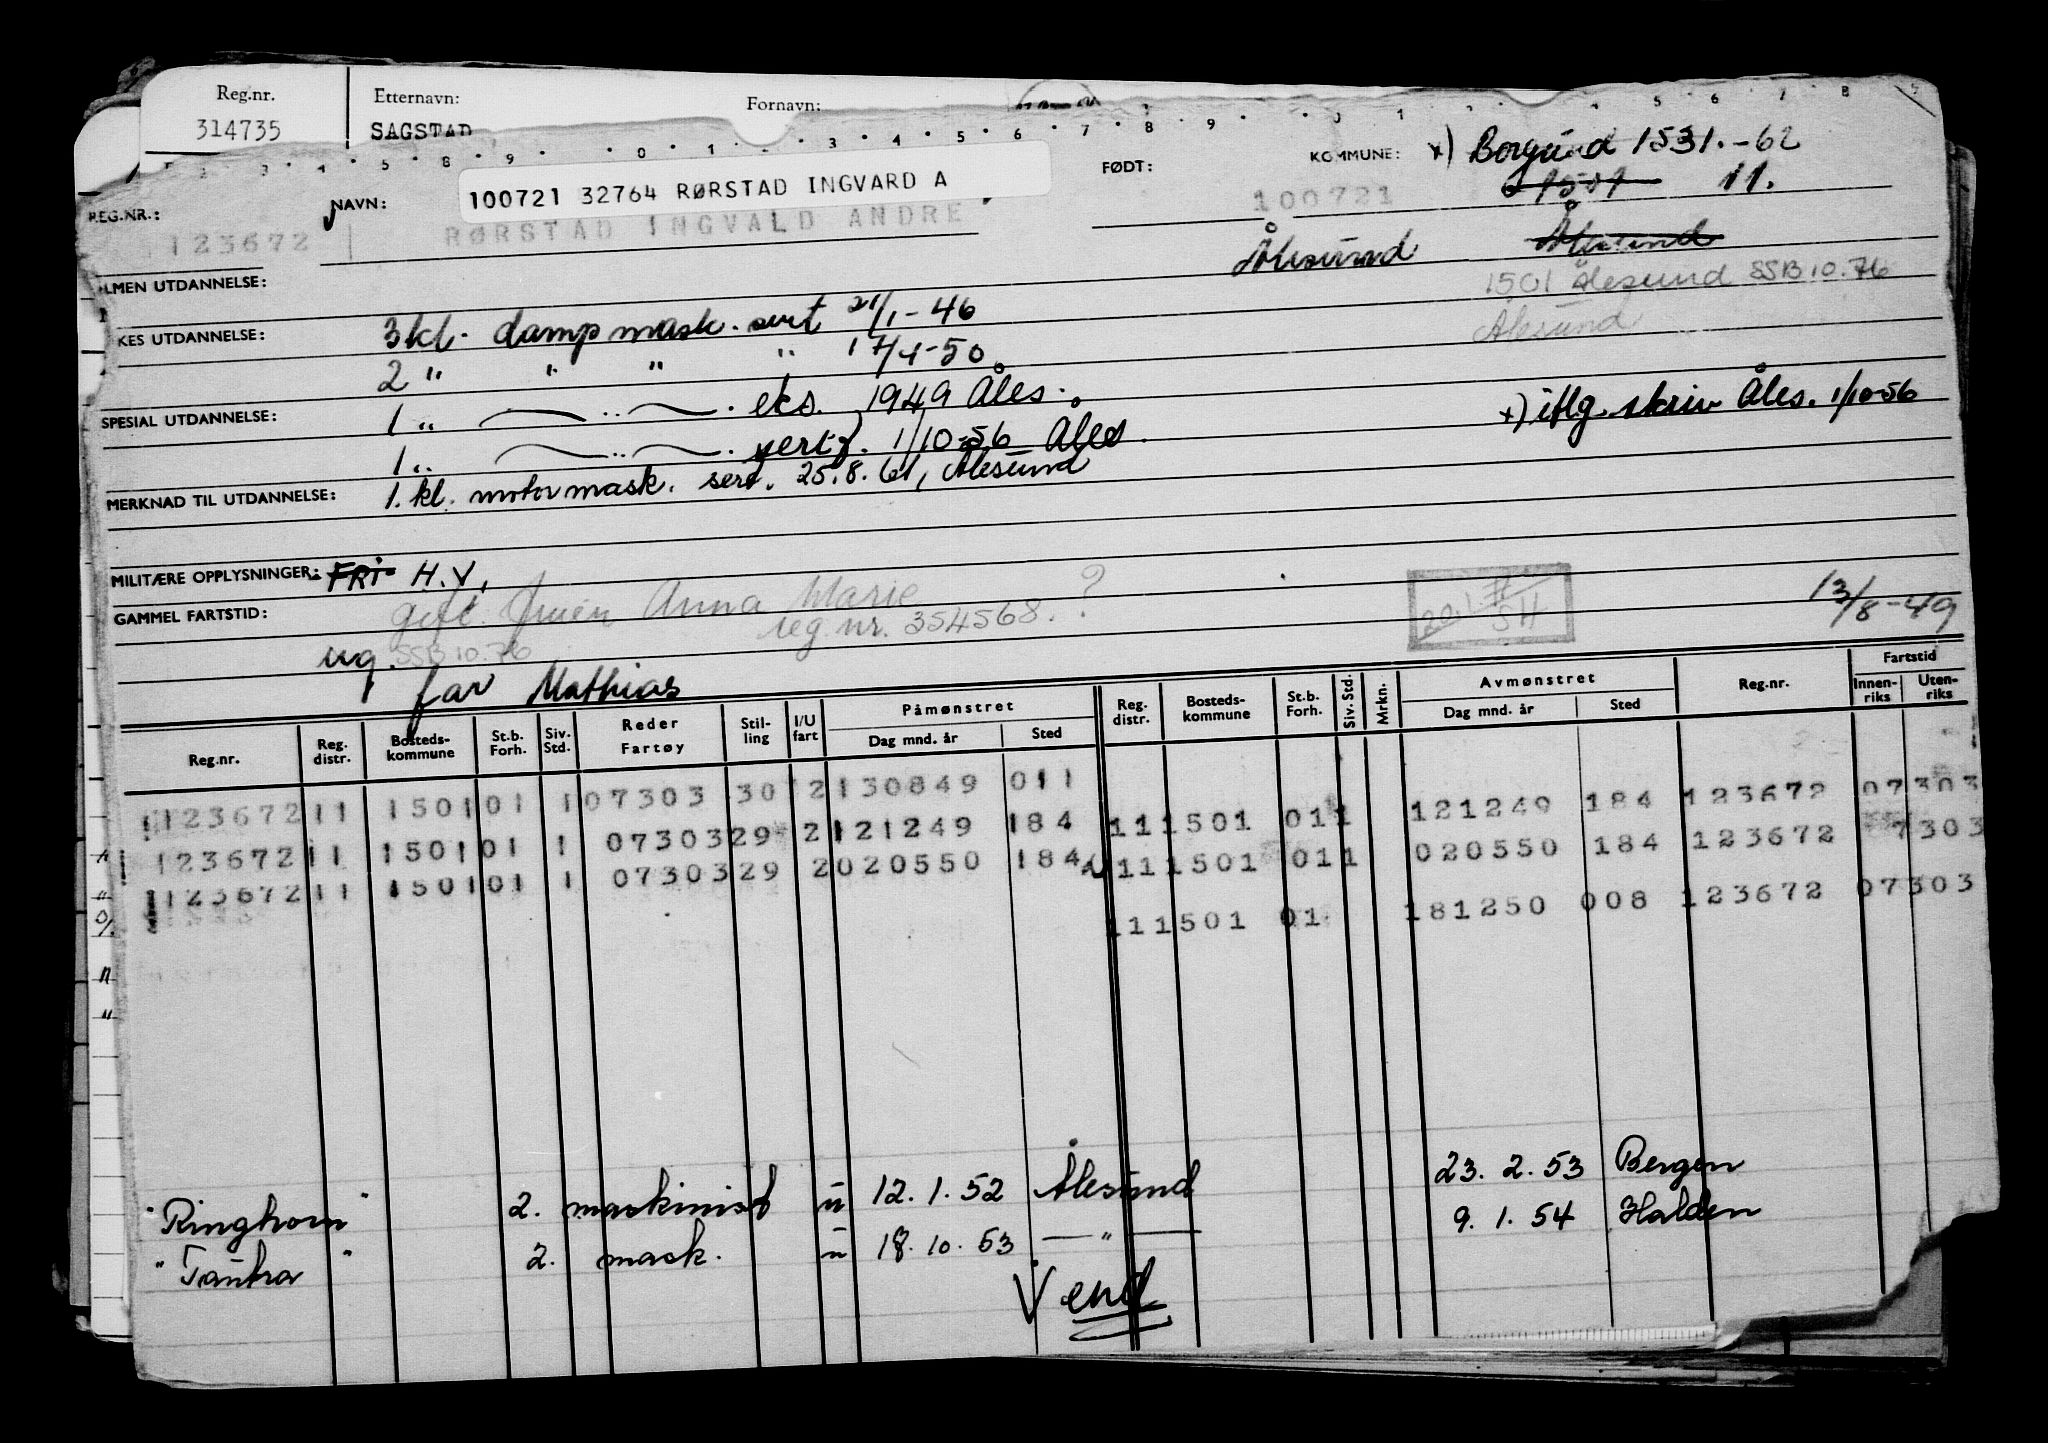 Reg.nr. Etternavn: Fornavn:
314735 SAGSTAD
REG.NR.: NAVN: 100721 32764 RØRSTAD INGVARD A FØDT: KOMMUNE: x) Borgund 1531.-62
123672 RØRSTAD INGVALD ANDRE 100721 1501 11.
Ålesund Ålesund
LMEN UTDANNELSE: 1501 Ålesund SSB 10.76
KES UTDANNELSE: 3 kl. damp mask. sert 21/1-46 Ålesund
2 " " " " 17/1-50
SPESIAL UTDANNELSE: 1 " eks. 1949 Åles. x) iflg skriv Åles. 1/10-56
1 " sertf. 1/10-56 Åles.
MERKNAD TIL UTDANNELSE: 1. kl. motor mask. sert. 25.8.61, Ålesund
MILITÆRE OPPLYSNINGER: FRI H.V.
GAMMEL FARTSTID: gift. Anna Marie ? 13/8-49
ug. SSB 10.76 reg.nr. 354568.
far Mathias
Reg.nr. Reg. distr. Bosteds-kommune St.b. Forh. Siv. Std. Reder Fartøy Stil-ling I/U fart Påmønstret Dag mnd. år Sted Reg. distr. Bosteds-kommune St.b. Forh. Siv. Std. Mrkn. Avmønstret Dag mnd. år Sted Reg.nr. Fartstid Innen-riks Uten-riks
123672 11 1501 01 1 07303 30 2 130849 011
123672 11 1501 01 1 07303 29 2 121249 184 11 1501 01 1 121249 184 123672 07303
123672 11 1501 01 1 07303 29 2 020550 184 11 1501 01 1 020550 184 123672 7303
11 1501 01 181250 008 123672 07303
"Ringhorn" 2. maskinist u 12.1.52 Ålesund 23.2.53 Bergen
"Tautra" 2. mask. u 18.10.53 — " — 9.1.54 Halden
Vend